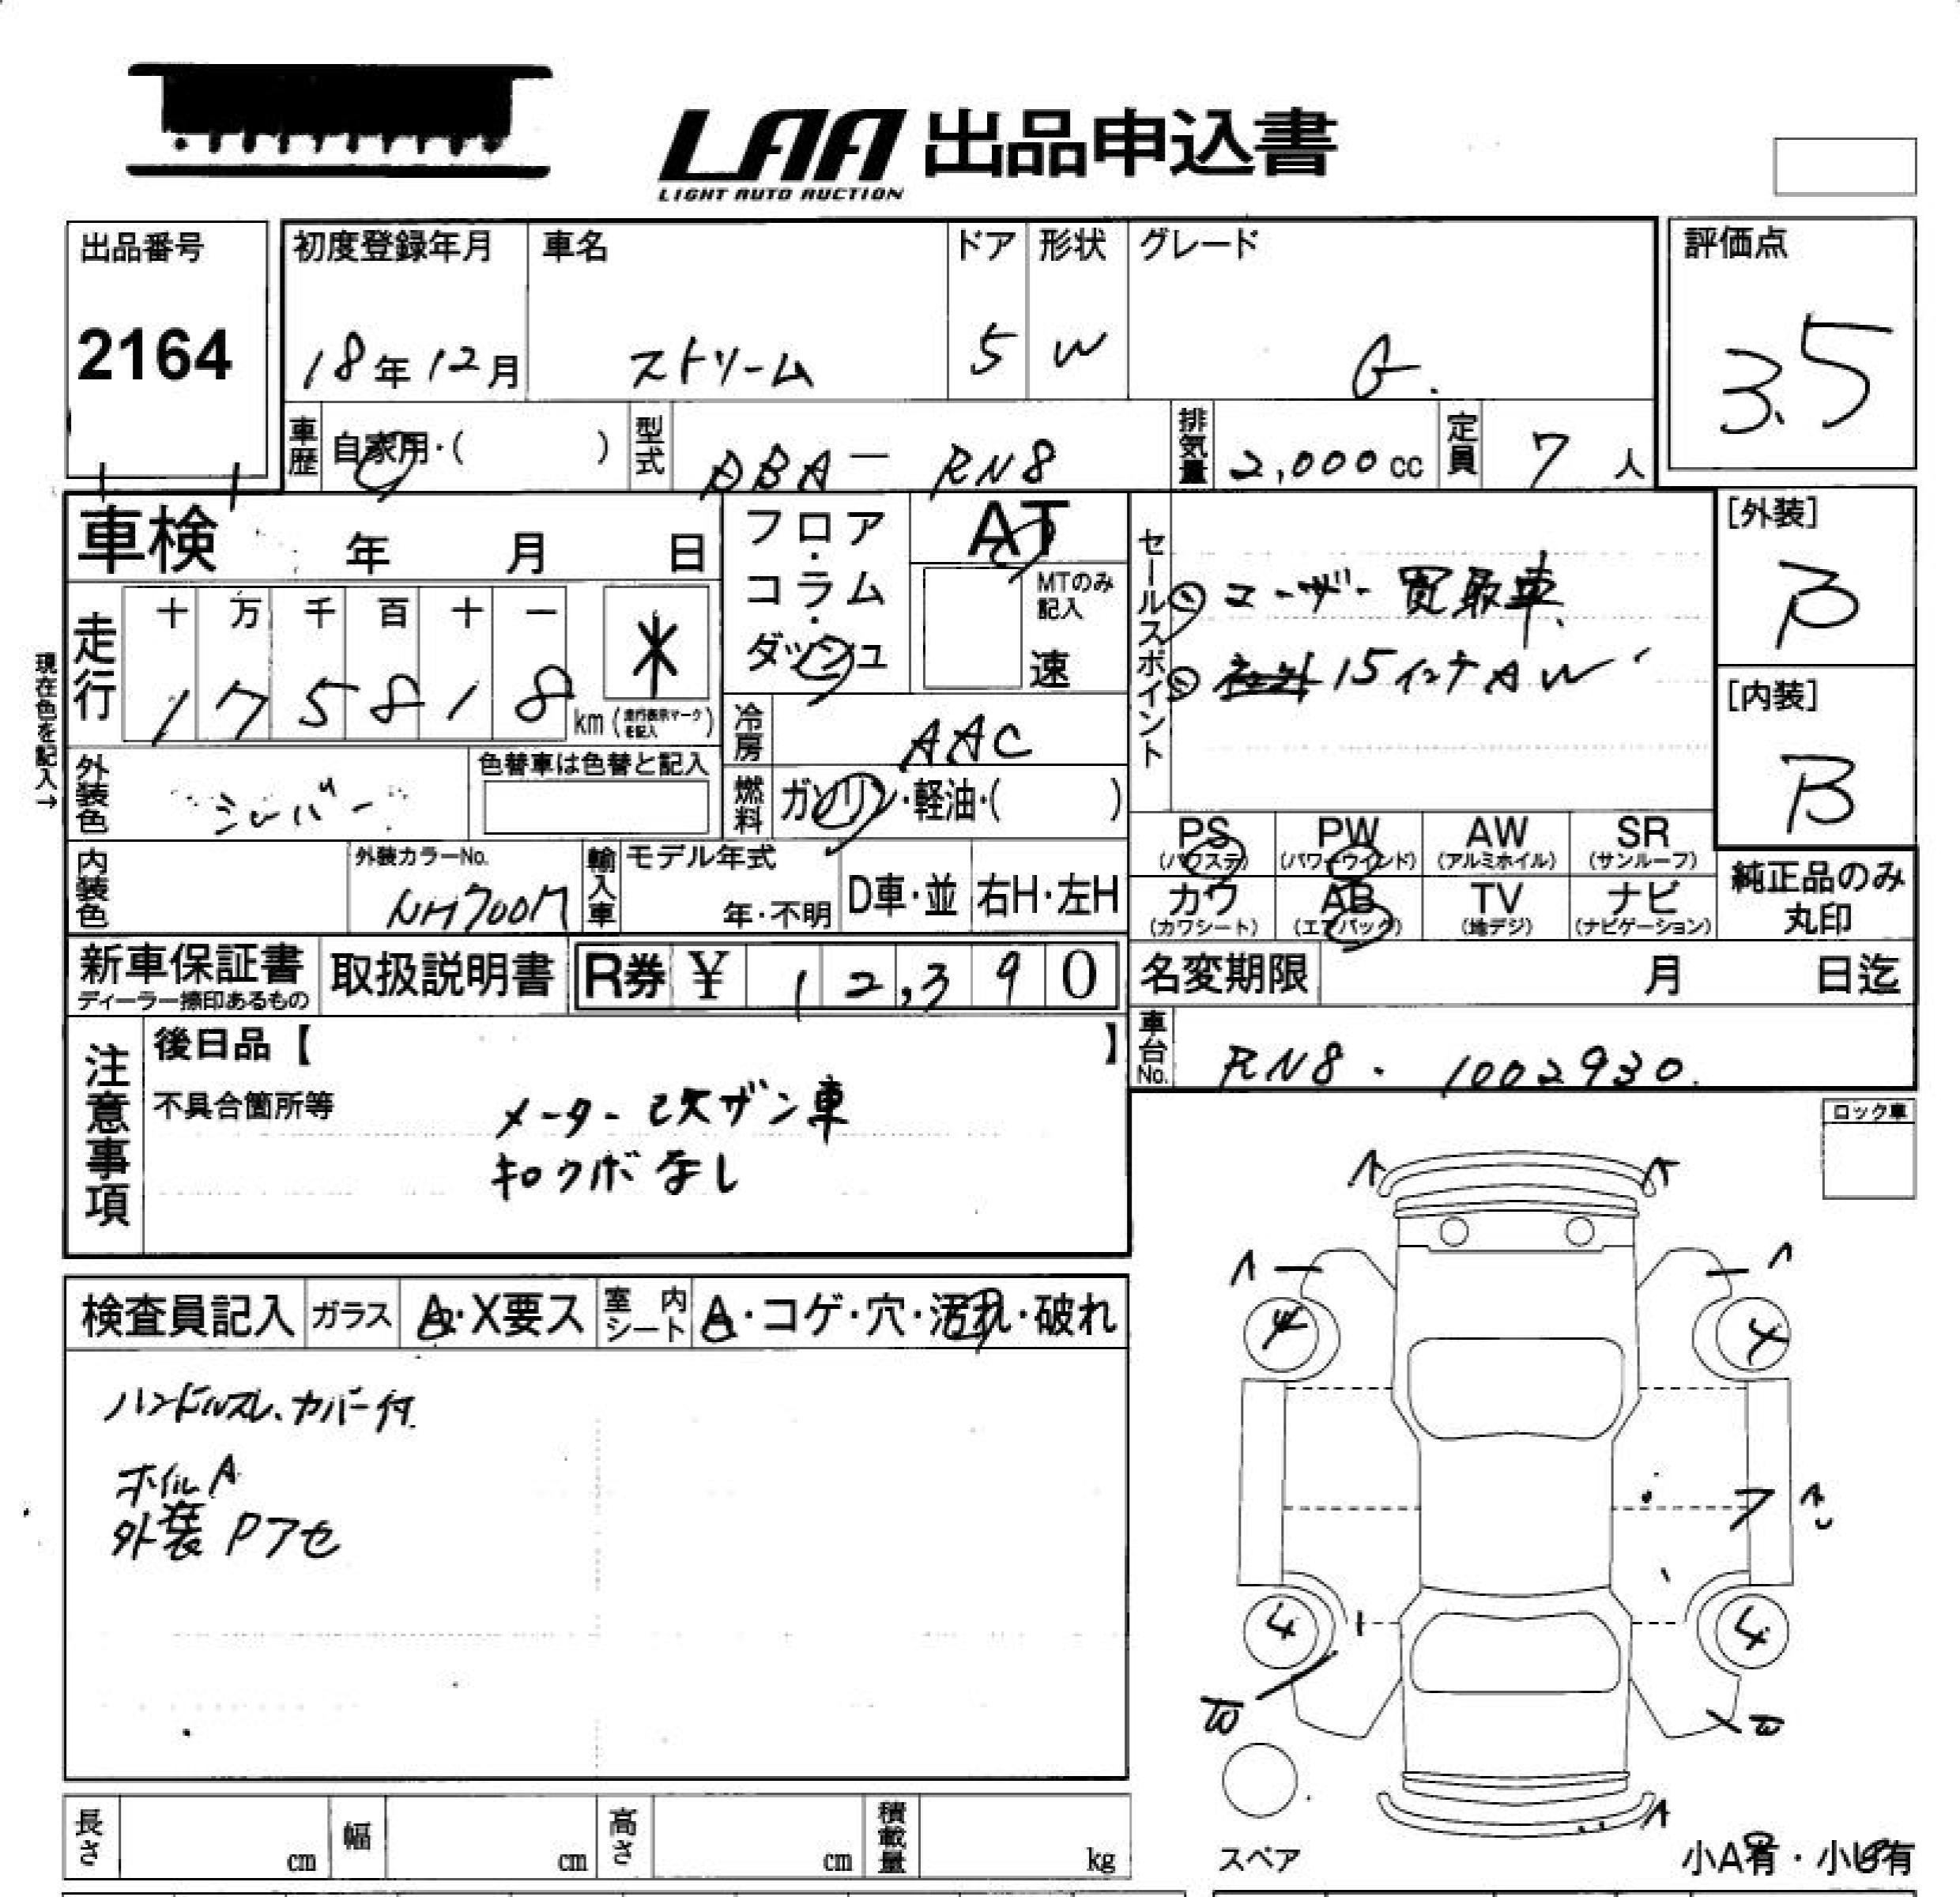 LAA 出品申込書
LIGHT AUTO AUCTION
出品番号
2164
初度登録年月
18年12月
車名
ストリーム
ドア
5
形状
W
グレード
G.
評価点
3.5
車歴
自家用・( )
型式
DBA－RN8
排気量
2,000cc
定員
7人
車検 年 月 日
フロア・コラム・ダッシュ
AT
MTのみ記入
速
セールスポイント
ユーザー買取車
15インチAW
[外装]
B
[内装]
B
現在色を記入→
走行
十 万 千 百 十 一
1 7 5 8 1 8 km
*
(走行表示マークを記入)
冷房
AAC
外装色
シルバー
色替車は色替と記入
燃料
ガソリン・軽油・( )
PS
(パワステ)
PW
(パワーウインド)
AW
(アルミホイル)
SR
(サンルーフ)
カワ
(カワシート)
AB
(エアバック)
TV
(地デジ)
ナビ
(ナビゲーション)
純正品のみ
丸印
内装色
外装カラーNo.
NH700M
輸入車
モデル年式
年・不明
D車・並
右H・左H
新車保証書
ディーラー捺印あるもの
取扱説明書
R券 ¥ 12,390
名変期限 月 日迄
車台No.
RN8 - 1002930.
注意事項
後日品【 】
不具合箇所等
メーター改ザン車
キロクボなし
ロック車
検査員記入
ガラス
A・X要ス
室内シート
A・コゲ・穴・汚れ・破れ
ハンドルスレ、カバー付
ホイルA
外装Pアセ
A
A
A
A
4
4
ア
4
4
A
長さ cm
幅 cm
高さ cm
積載量 kg
スペア
小A有・小U有